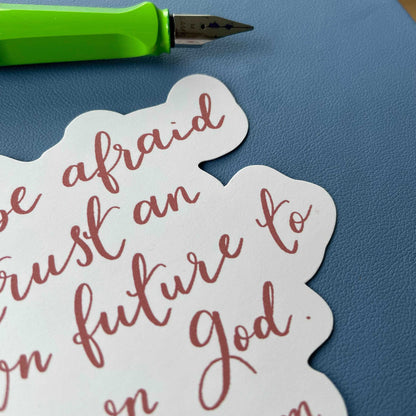 be afraid
trust an
n future to
n God.